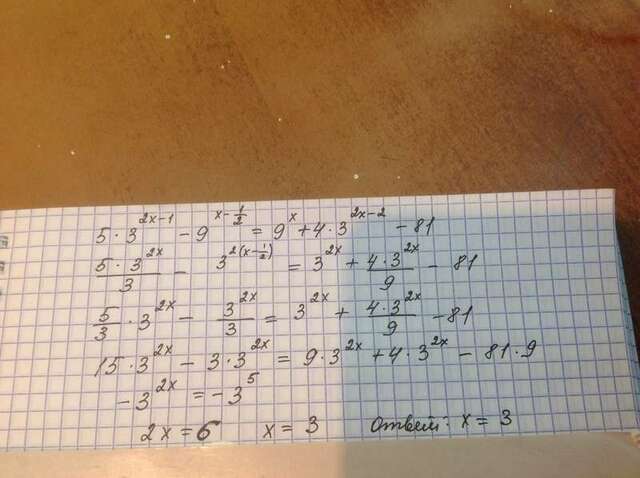 5 · 3^{2x-1} - 9^{x-\frac{1}{2}} = 9^x + 4 · 3^{2x-2} - 81
\frac{5 · 3^{2x}}{3} - 3^{2(x-\frac{1}{2})} = 3^{2x} + \frac{4 · 3^{2x}}{9} - 81
\frac{5}{3} · 3^{2x} - \frac{3^{2x}}{3} = 3^{2x} + \frac{4 · 3^{2x}}{9} - 81
15 · 3^{2x} - 3 · 3^{2x} = 9 · 3^{2x} + 4 · 3^{2x} - 81 · 9
-3^{2x} = -3^5
2x = 6 x = 3 Ответ: x = 3